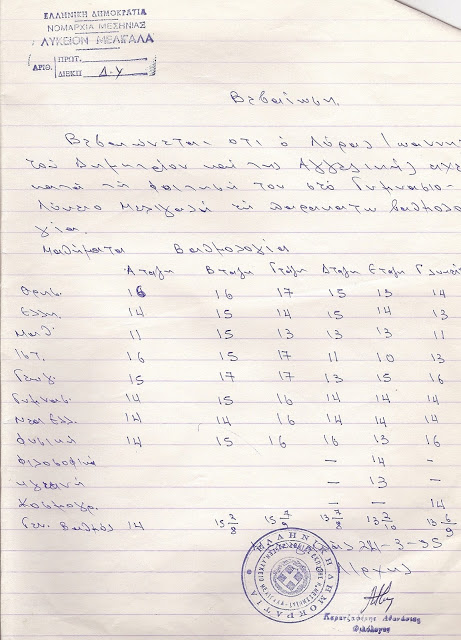 ΕΛΛΗΝΙΚΗ ΔΗΜΟΚΡΑΤΙΑ
ΝΟΜΑΡΧΙΑ ΜΕΣΗΝΙΑΣ
ΛΥΚΕΙΟΝ ΜΕΛΙΓΑΛΑ
ΑΡΙΘ. ΠΡΩΤ.
ΔΙΕΚΠ Δ.Υ
Βεβαίωση
Βεβαιώνεται οτι ὁ Λύρας Ιωαννη
τοῦ Δημητρίου καί της Αγγελικής εχει
κατά τή φοιτησή του στό Γυμνασιο-
Λύκειο Μελιγαλά τή παρακατω βαθμολο
γία.
Μαθήματα Βαθμολογία
Α ταξη Β ταξη Γ ταξη Δ ταξη Ε ταξη
Θρησ. 16 16 17 15 13 14
Ελλη. 14 15 14 15 14 13
Μαθ 11 15 13 13 13 11
Ιστ. 16 15 17 11 10 13
Γεωγ. 15 17 17 13 15 16
Γυμνασ. 14 15 16 14 14 14
Νεα Ελλ. 14 14 16 14 14 14
Φυσικά 14 15 16 16 13 16
Φιλοσοφικά — 14 —
Υγιεινή — 13 —
Κοσμογρ. — — 14
Γεν. Βαθμός 14 15 2/8 13 2/10 13 6/9
24-3-95
ΕΛΛΗΝΙΚΗ ΔΗΜΟΚΡΑΤΙΑ
Αθανάσιος
Φιλόλογος